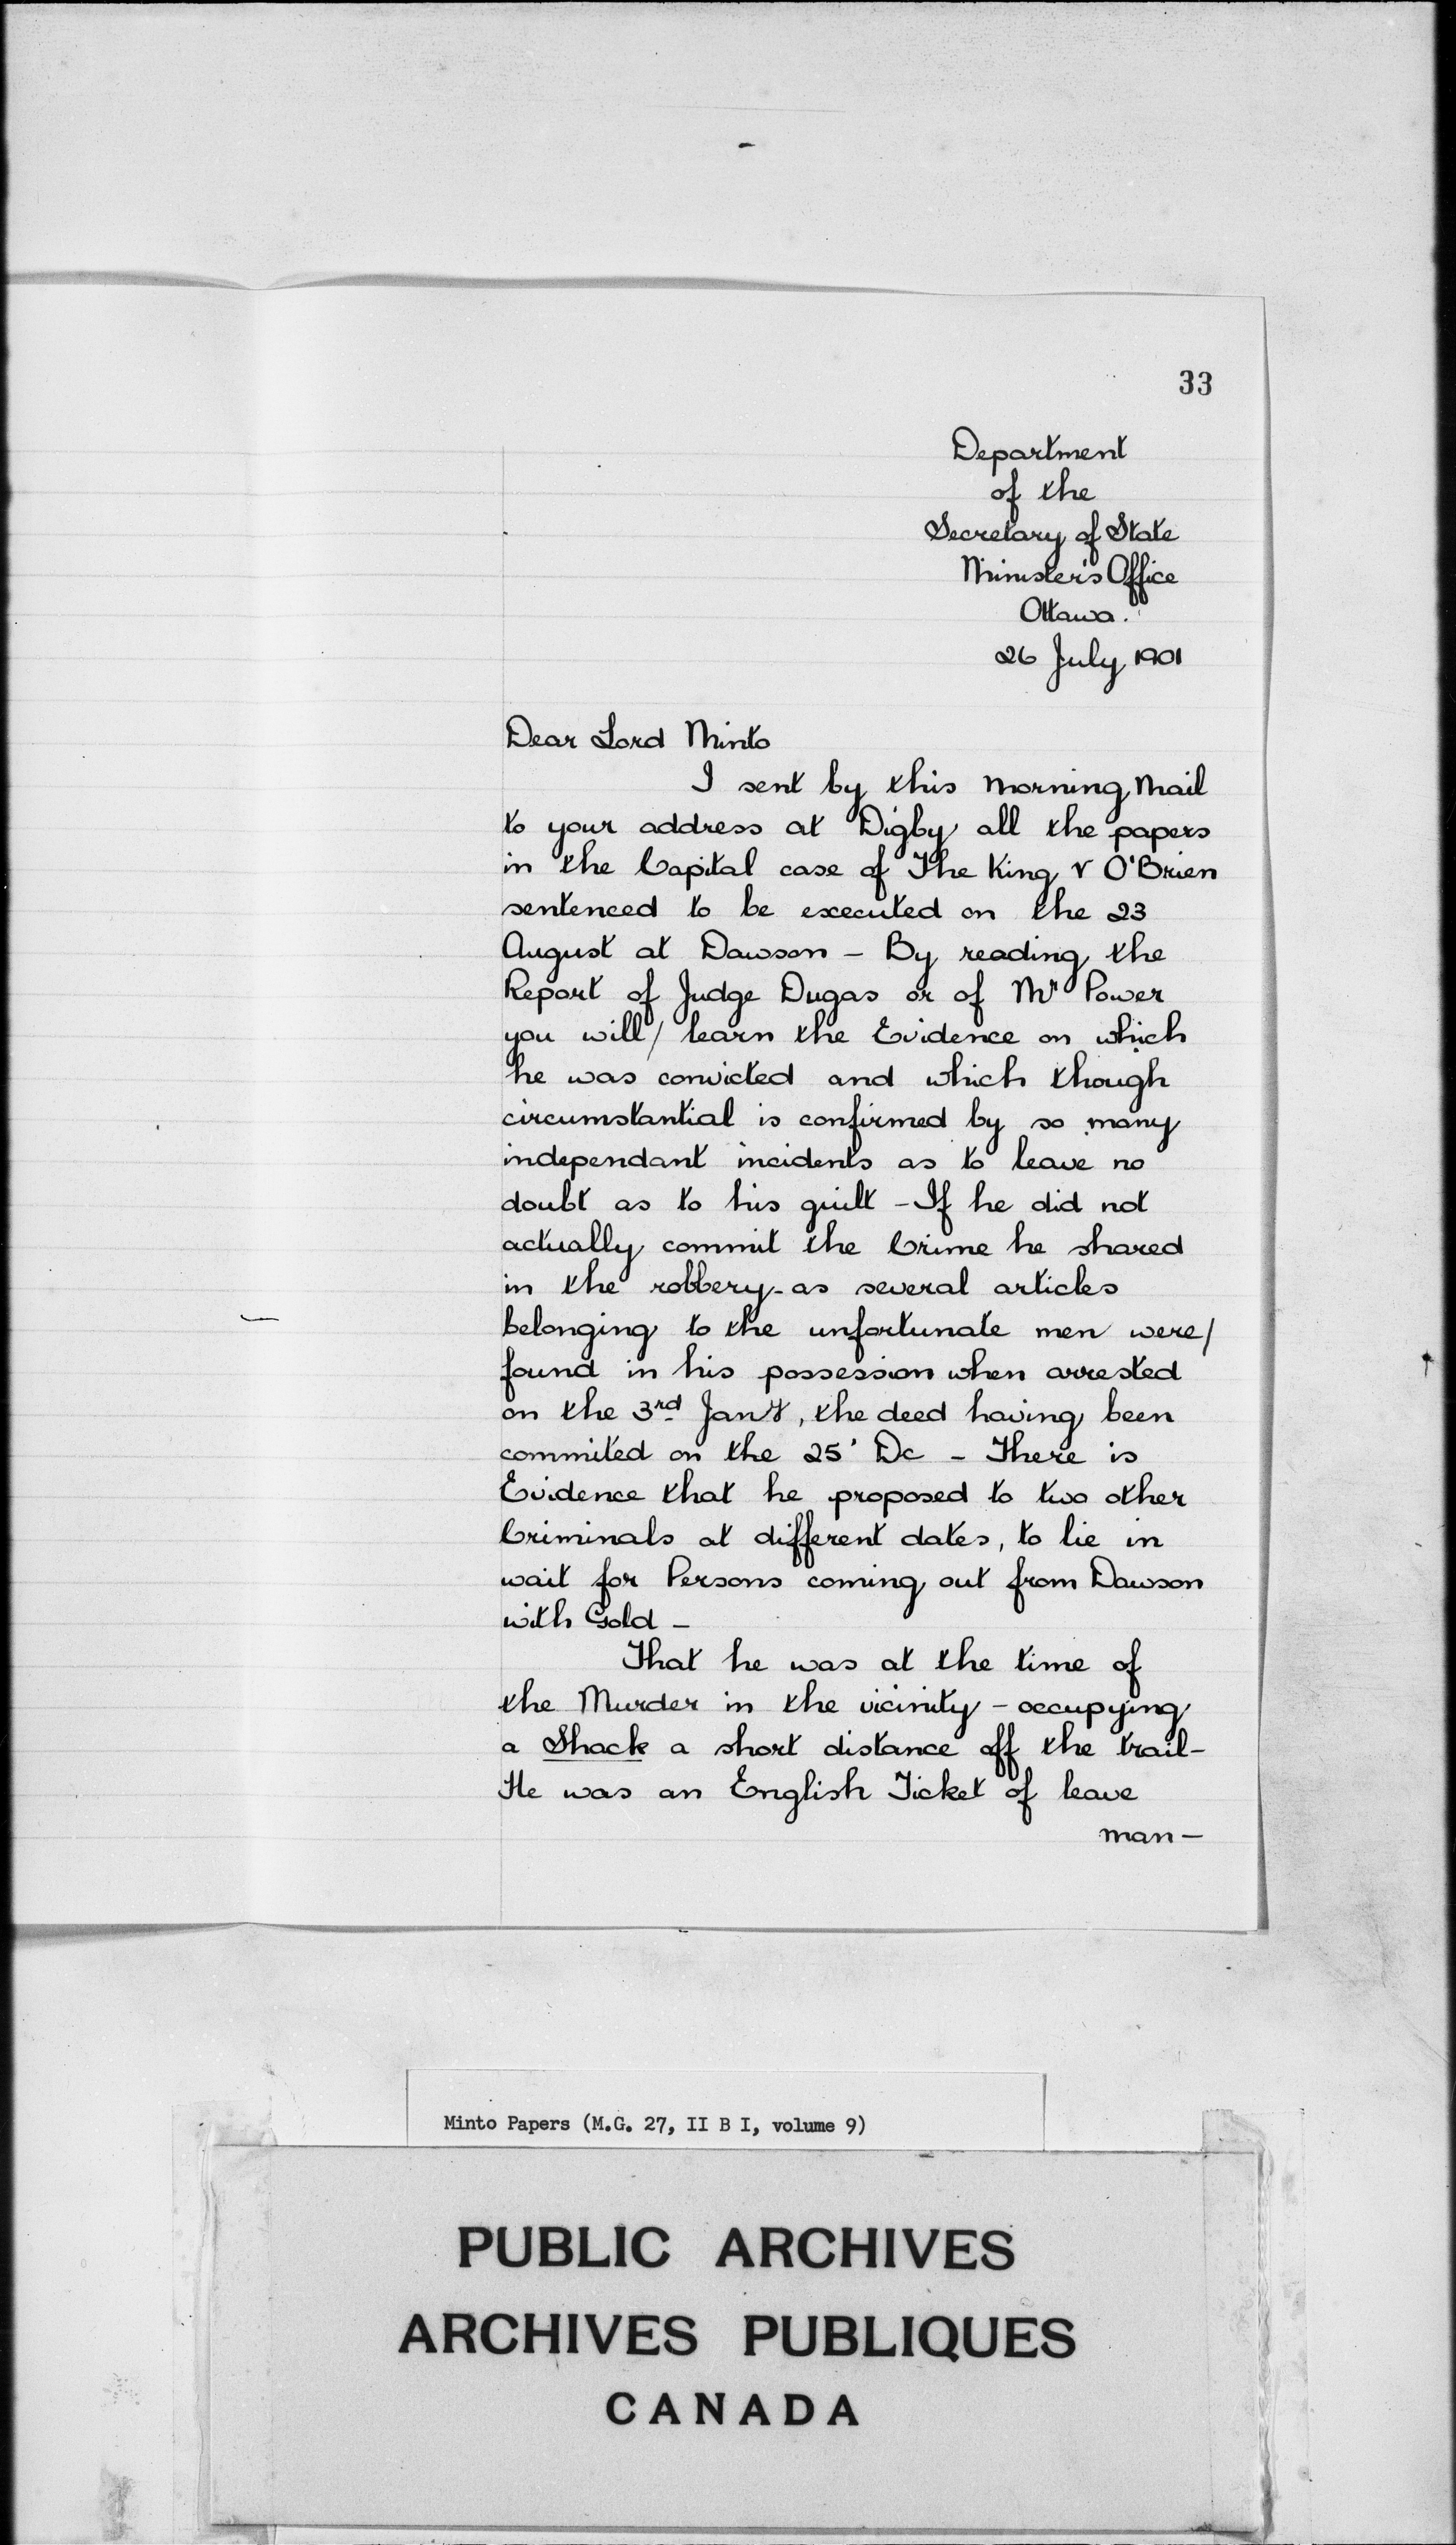 33
Department
of the
Secretary of State
Minister's Office
Ottawa.
26 July 1901
Dear Lord Minto
I sent by this morning mail
to your address at Digby all the papers
in the Capital case of The King v O'Brien
sentenced to be executed on the 23
August at Dawson – By reading the
Report of Judge Dugas or of Mr Power
you will/ learn the Evidence on which
he was convicted and which though
circumstantial is confirmed by so many
independant incidents as to leave no
doubt as to his guilt – If he did not
actually commit the Crime he shared
in the robbery - as several articles
belonging to the unfortunate men were/
found in his possession when arrested
on the 3rd Jany, the deed having been
commited on the 25' Dc – There is
Evidence that he proposed to two other
Criminals at different dates, to lie in
wait for Persons coming out from Dawson
with Gold –
That he was at the time of
the Murder in the vicinity – occupying
a Shack a short distance off the trail –
He was an English Ticket of leave
man –
Minto Papers (M.G. 27, II B I, volume 9)
PUBLIC ARCHIVES
ARCHIVES PUBLIQUES
CANADA